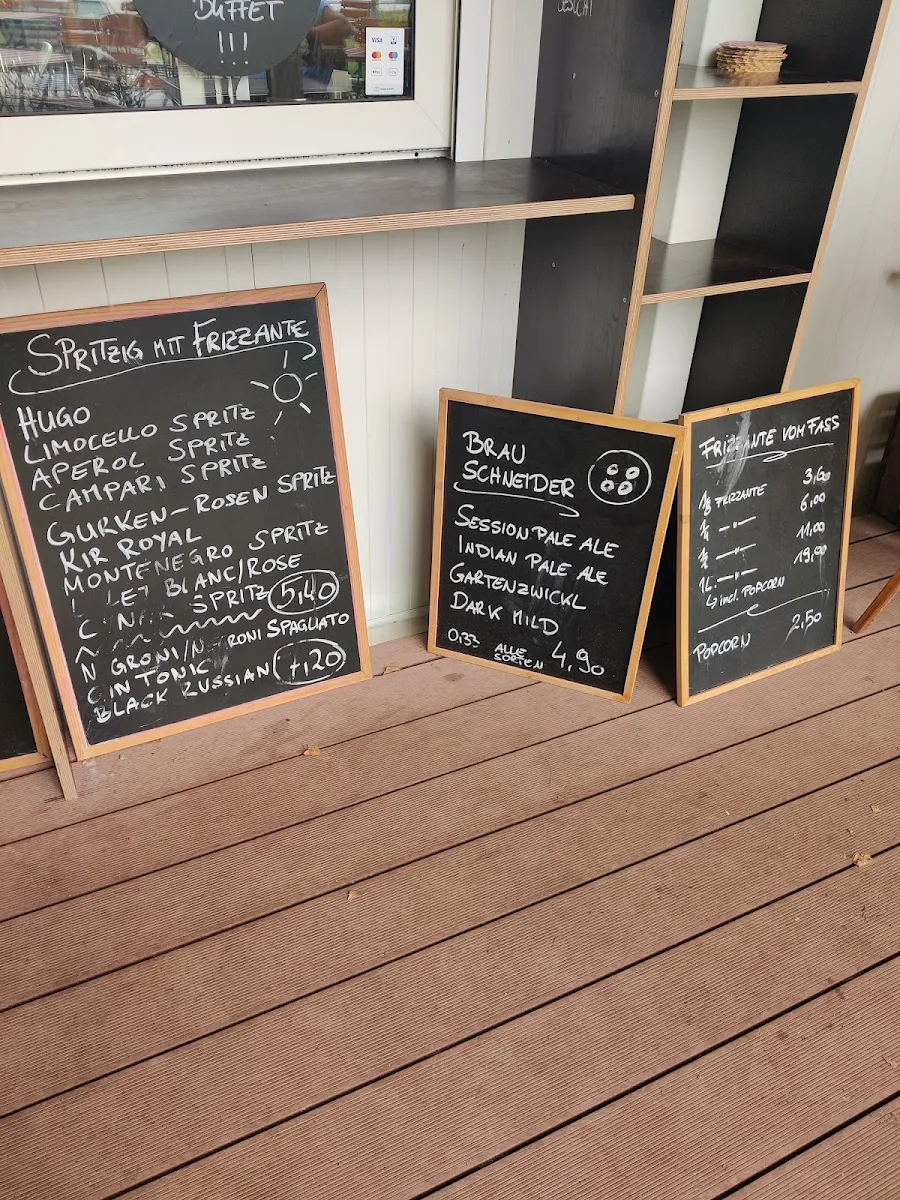 BUFFET
!!!
VISA
SPRITZIG MIT FRIZZANTE
HUGO
LIMOCELLO SPRITZ
APEROL SPRITZ
CAMPARI SPRITZ
GURKEN-ROSEN SPRITZ
KIR ROYAL
MONTENEGRO SPRITZ
BLANC/ROSE
SPRITZ 5,40
SPAGLIATO
IN TONIC
BLACK RUSSIAN 7,20
BRAU
SCHNEIDER
SESSION PALE ALE
INDIAN PALE ALE
GARTENZWICKL
DARK MILD
0,33 ALLE SORTEN 4,90
FRIZZANTE VOM FASS
1/8 FRIZZANTE 3,60
1/4 -"- 6,00
1/2 -"- 11,00
1L -"- 19,90
↳ incl. POPCORN
POPCORN 2,50